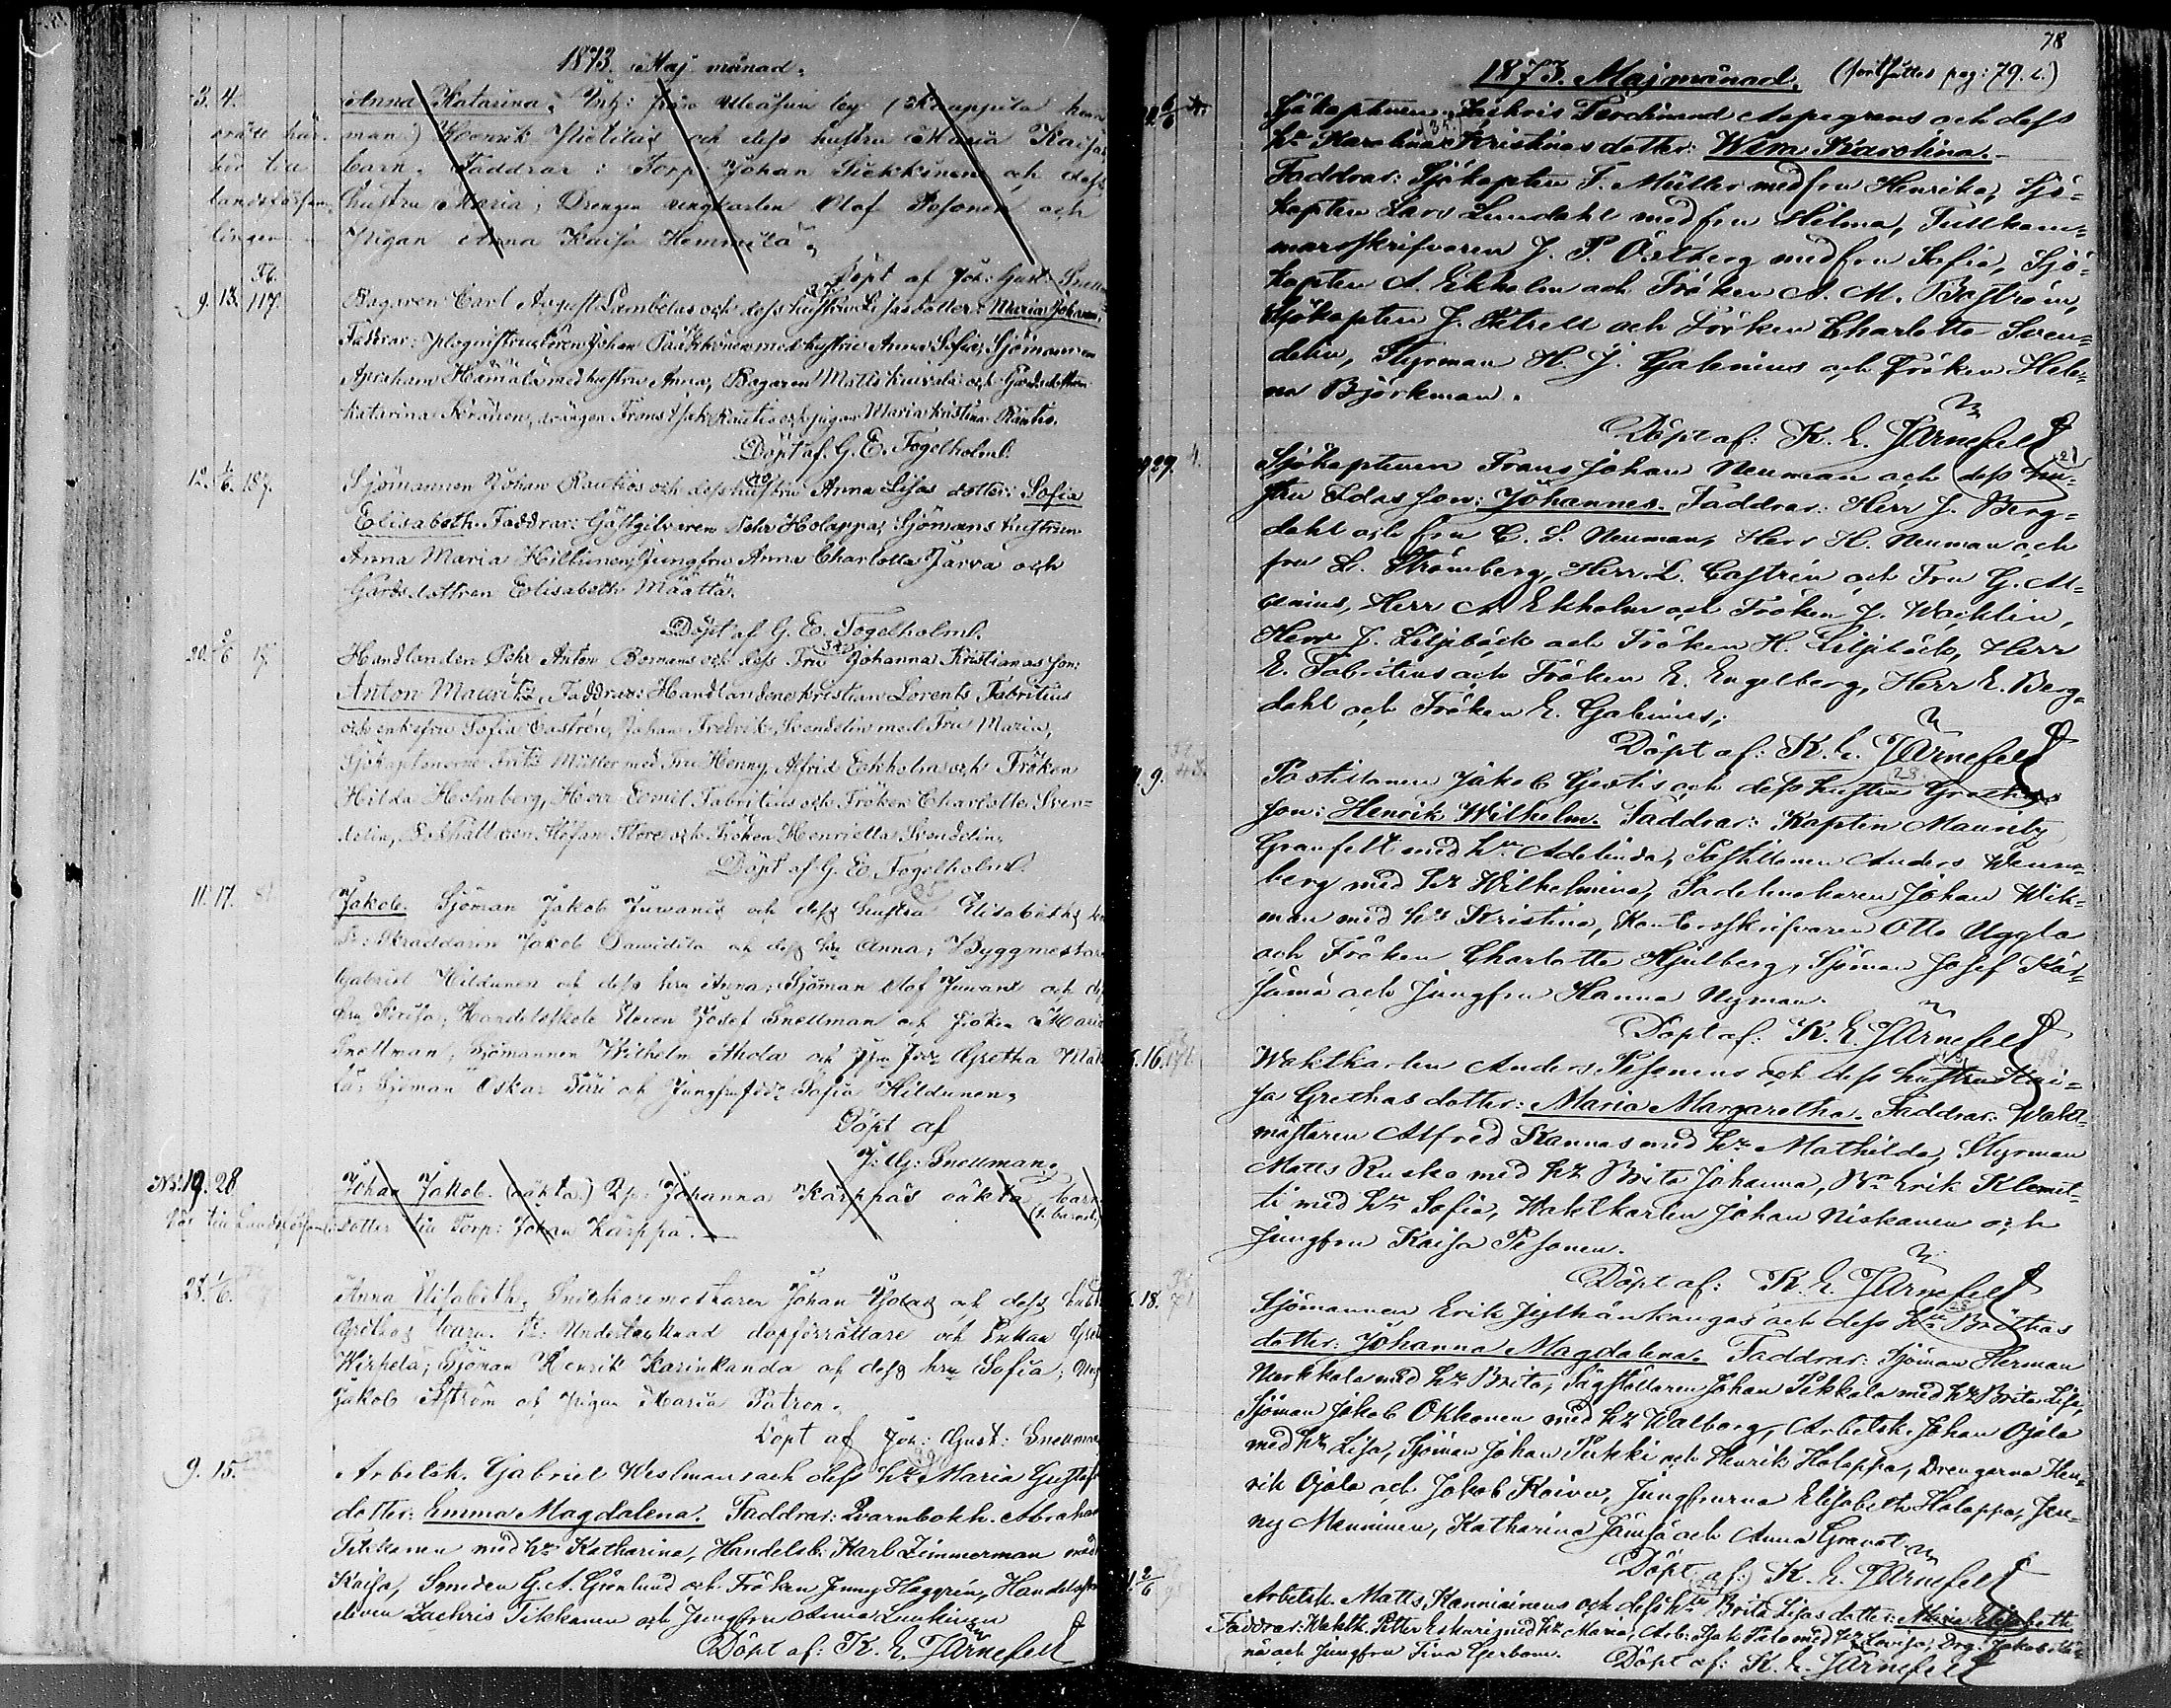 1873. Maj månad.
3. 4. Anna Katarina, från Uleåsuu by (Knappila
orätt här man) Henrik och dess hustru Maria Kaisas
hör till barn. Faddrar: Torp: Johan Siekkinen och dess
landsförsam- hustru Maria; Drengen Olof Pesonen och
lingen Pigan Anna Kaisa Hemmilä.
Döpt af Joh: Gust: Snellman
9. 13. 117. Bagaren Carl August Lambelas och dess hustru Lisas dotter: Maria Johanna
Faddrar: Johan Pääkkönen med hustru Anna Sofia, Sjömannen
Abraham Hämälä med hustru Anna, Bagaren Matts och Gårdsdottren
Katarina drängen Frans Isak Rautio och pigan Maria Kristina Rautio.
Döpt af G. E. Fogelholm.
12. 1/6. 187. Sjömannen Johan Rautios och dess hustru Anna Lisas dotter: Sofia
Elisabeth. Faddrar: Gästgifvaren Pehr Holappa, Sjömans hustrun
Anna Maria Hiltunen, Jungfru Anna Charlotta Järvä och
Gårdsdottren Elisabeth Määttä.
Döpt af G. E. Fogelholm.
20. Handlanden Pehr Anton Bomans och dess Fru Johanna Kristianas son:
Anton Mauritz. Faddrar: Handlandene Kristian Lorents Fabritius
och enkefru Sofia Castrén, Johan Fredrik Svendelin med Fru Maria,
Sjökaptenerne Fritz Müller med Fru Henny, Alfrid Eckholm och Fröken
Hilda Holmberg, Herr Emil Fabritius och Fröken Charlotte Sven=
delin, Stefan och Fröken Henrietta Svendelin.
Döpt af G. E. Fogelholm.
11. 17. 81 Jakob. Sjöman Jakob Juwanis och dess hustru Elisabeths
Skräddarin Jakob Dawidila och dess hru Anna; Byggmestare
Gabriel Hildunen och dess hru Anna; Sjöman Olof Juwani och
hru Kaisa; Handelsskole Eleven Josef Snellman och fröken Maria
Snellman; Sjömannen Wilhelm Ahola och Gretha
Sjöman Oskar och Jungfru Sofia Hildunen.
Döpt af
J: G: Snellman.
No: 19. 28 Johan Jakob. (oäkta.) Johanna Kärppäs oäkta barn
Hör till Landsförsaml: dotter till Torp: Johan Kärppä.
28. 1/6. Anna Elisabeth, Snickaremestaren Johan och dess hustru
Grethas barn. Undertecknad dopförrättare och Enkan
Wirpela; Sjöman Henrik Karinkanda och dess hru Sofia;
Jakob Åström och pigan Maria Patron.
Döpt af Joh: Gust: Snellman
9. 15. Arbetsk. Gabriel Westmans och dess hr Maria Gustafs
dotter: Emma Magdalena. Faddrar: Qvarnbokh. Abraham
Tikkanen med hr Katharina, Handelsb: Karl Zimmerman med
Kaisa, Smeden G. A. Grönlund och Fröken Jenny Häggrén, Handels
Zachris Tikkanen och Jungfru Anna Lunkinen
Döpt af: K. E. Järnefelt
78
1873. Maj månad. (fortsättes pag: 79.)
Sjökaptenen Zachris Ferdinand Appegrens och dess
hr Karolina Kristinas dotter: Wilma Karolina.
Faddrar: Sjökapten F. Müller med fru Henrika, Sjö=
kapten Lars Lundahl med fru Hilma, Tullkam=
marskrifvaren J. P. Östberg med fru Sofia, Sjö=
kapten A. Ekholm och Fröken A. M. Boström,
Sjökapten J. Petrell och Fröken Charlotte Sven=
delin, Styrman H. J. Galenius och Fröken Hele=
na Björkman.
Döpt af: K. E. Järnefelt
29. Sjökaptenen Frans Johan Neuman och dess hu=
stru Idas son: Johannes. Faddrar: Herr J. Berg=
dahl och fru C. S. Neuman, Herr H. Neuman och
fru L. Strömberg, Herr L. Castrén och Fru G.
Herr A. Ekholm och Fröken J. Wacklin,
Herr J. Liljebäck och Fröken H. Liljebäck, Herr
E. Fabritius och Fröken E. Engelberg, Herr E. Berg=
dahl och Fröken E. Galenius;
Döpt af: K. E. Järnefelt
9. Postiljonen Jakob Gertis och dess hustru Grethas
son: Henrik Wilhelm. Faddrar: Kapten Mauritz
Granfelt med hr Adelinda, Postiljonen Anders Wenn=
berg med hr Wilhelmina, Sadelmakaren Johan Wik=
man med hr Kristina, Kontorsskrifvaren Otto Uggla
och Fröken Charlotte Hjulberg, Sjöman Josef
och Jungfru Hanna Nyman.
Döpt af: K. E. Järnefelt
16. Waktkarlen Anders Pesonens och dess hustru Kai=
sa Grethas dotter: Maria Margaretha. Faddrar: Wakt=
mästaren Alfred Kannas med hr Mathilda, Styrman
Matts Rusko med hr Brita Johanna, Erik Klemet=
ti med hr Sofia, Waktkarlen Johan Niskanen och
Jungfru Kaisa Pesonen.
Döpt af: K. E. Järnefelt
18. Sjömannen Erik Jylhänkangas och dess hr Brithas
dotter: Johanna Magdalena. Faddrar: Sjöman Herman
Markkala med hr Brita, Sågställaren Johan Pekkala med hr Brita Lisa,
Sjöman Jakob Okkonen med hr Walborg, Arbetsk. Johan Ojala
med hr Lisa, Sjöman Johan Pirkki och Henrik Holappa, Drengarna Hen=
rik Ojala och Jakob Koivu, Jungfrurna Elisabeth Holappa, Jen=
ny Manninen, Katharina Jämsä och Anna Granat.
Döpt af: K. E. Järnefelt
2/6 Arbetsk. Matts Kanniainens och dess hr Brita Lisas dotter: Maria Elisabeth
Faddrar: Waktk. Petter Eskari med hr Maria, Arb: Isak med hr Lovisa, Drg. Jakob
och Jungfru Fina Gerbom. Döpt af: K. E. Järnefelt